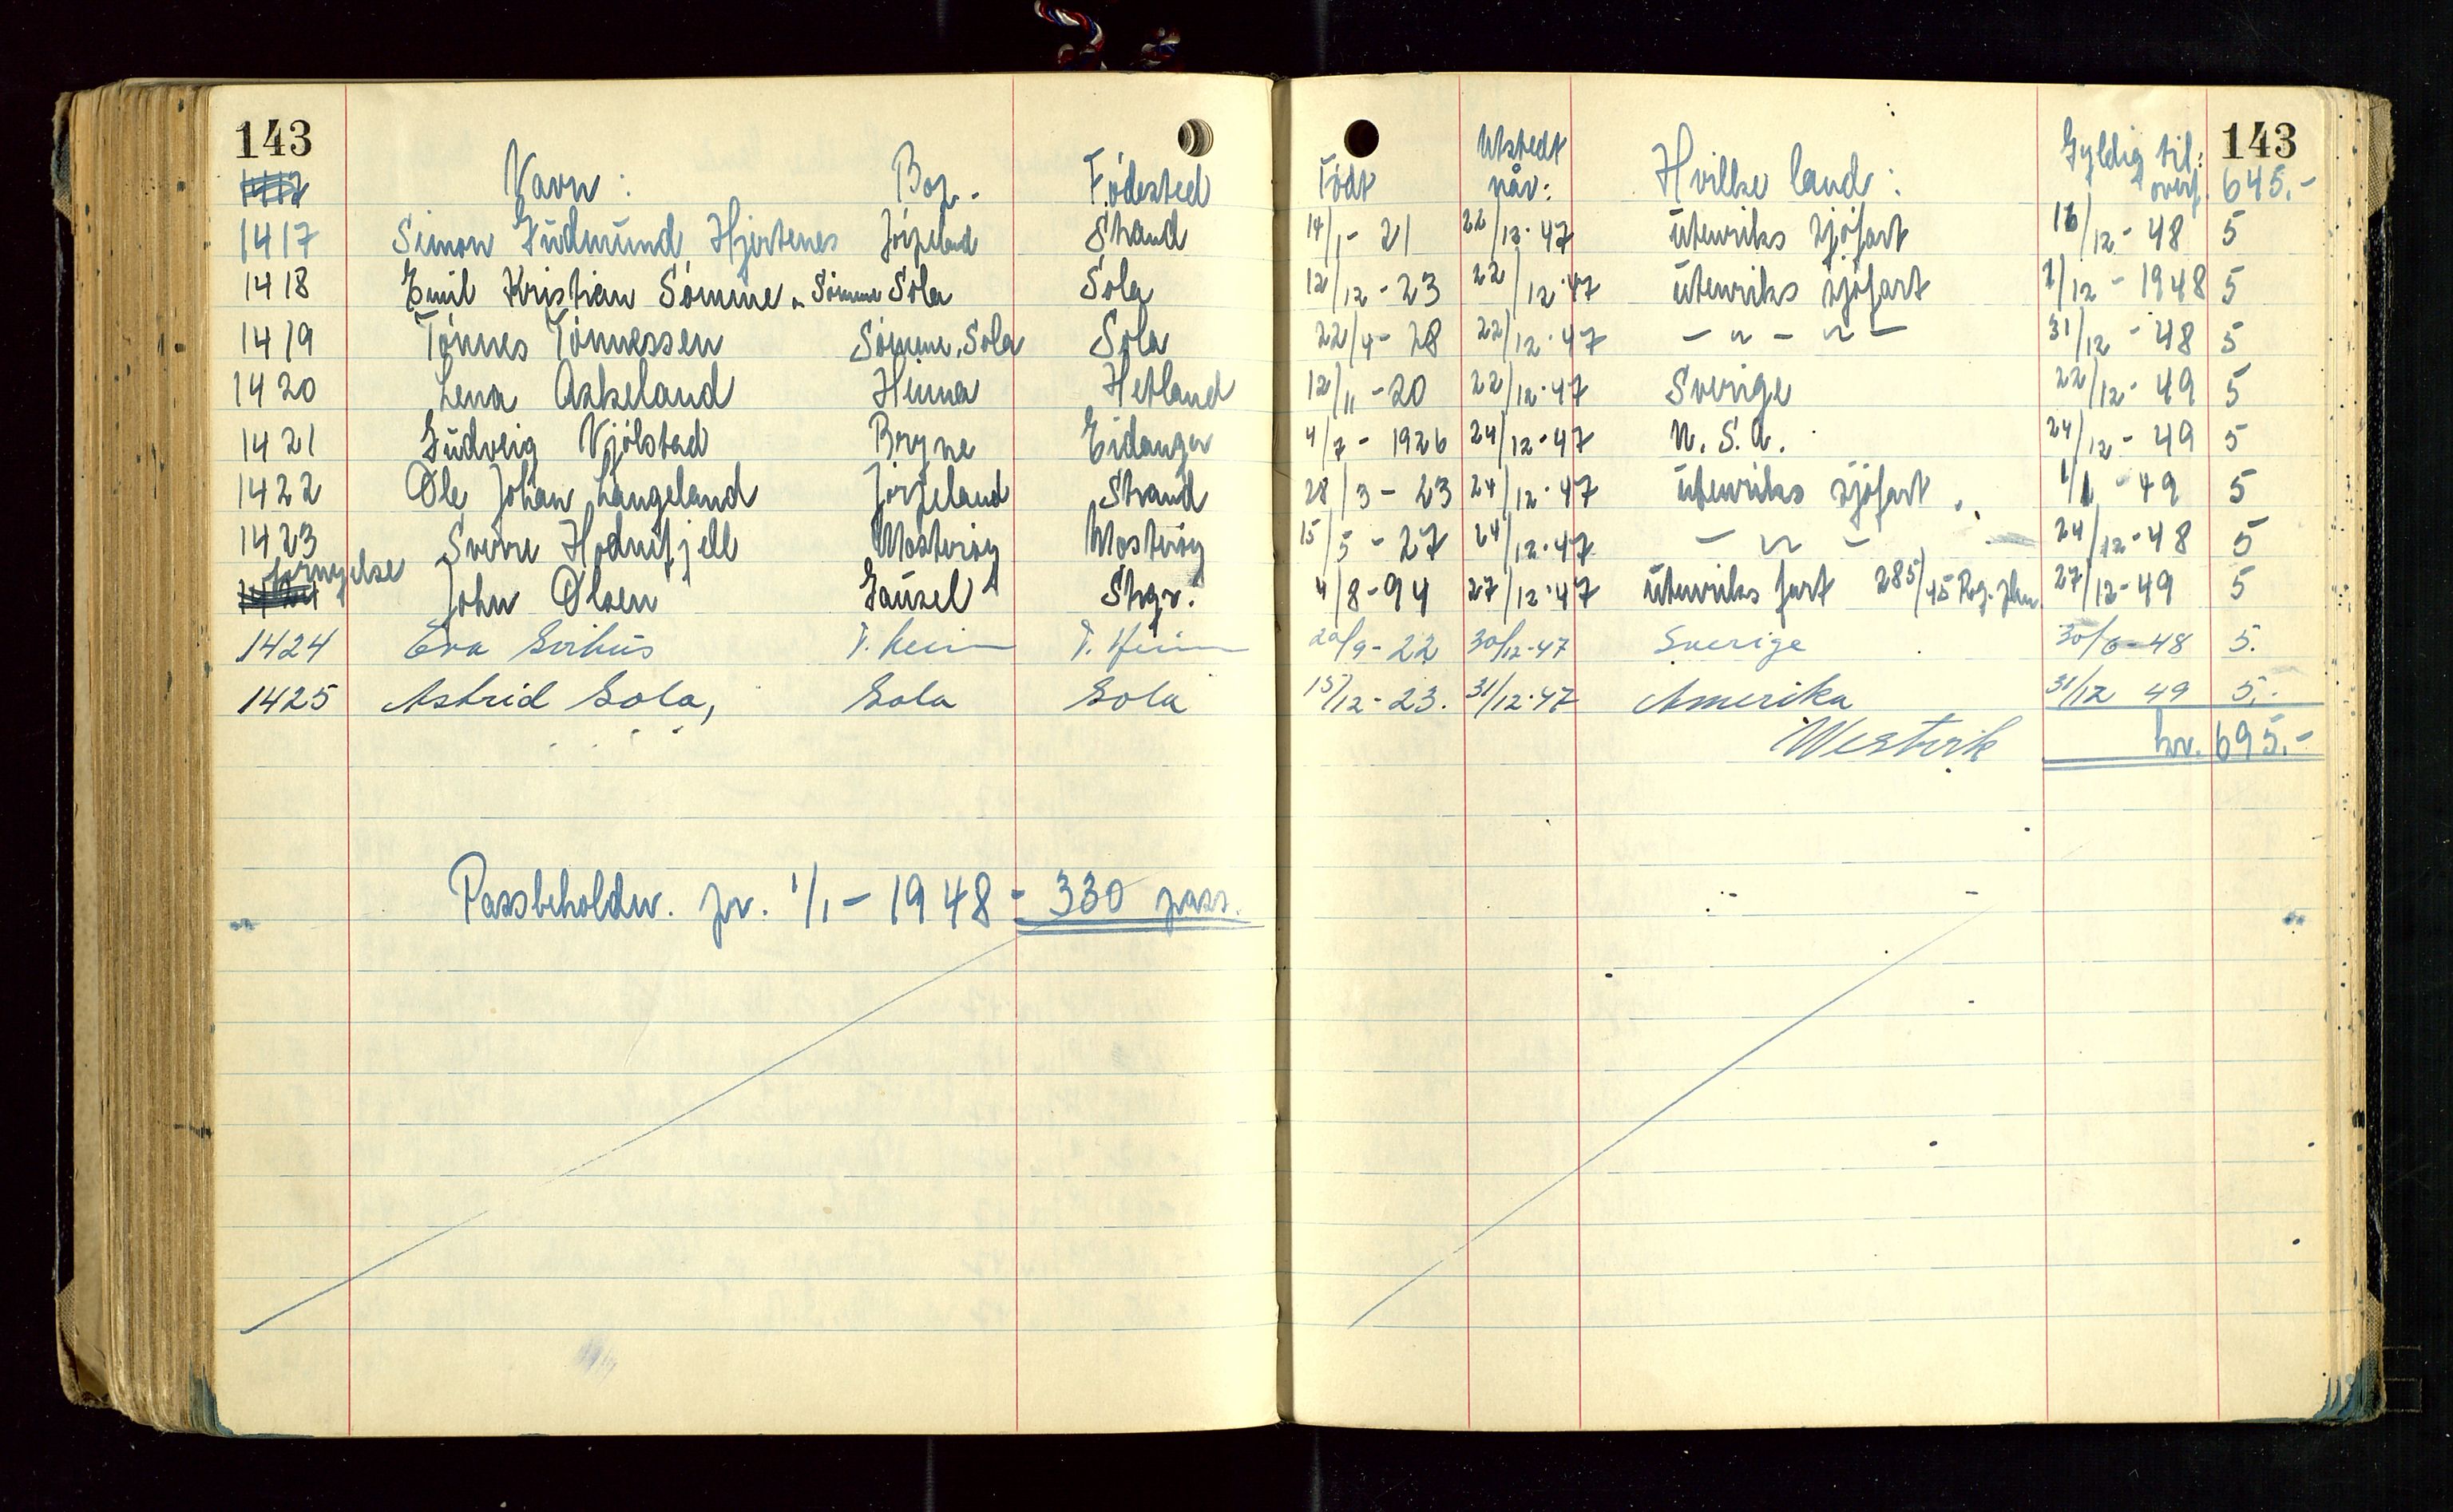 143 143
Navn: Bop. Fødested Født Utstedt når: Hvilke land: Gyldig til: overf. 645.-
1417 Simon Gudmund Hjertenes Jørpeland Strand 14/1 - 21 22/12-47 utenriks sjøfart 18/12 - 48 5
1418 Emil Kristian Sømme Sømme Sola Sola 12/12 - 23 22/12-47 utenriks sjøfart 1/12 - 1948 5
1419 Tønnes Tønnessen Sømme, Sola Sola 22/4 - 28 22/12-47 - " - " - 31/12 - 48 5
1420 Lena Askeland Hinna Hetland 12/11 - 20 22/12-47 Sverige 22/12 - 49 5
1421 Gudveig Njølstad Bryne Eidanger 4/7 - 1926 24/12-47 U.S.A. 24/12 - 49 5
1422 Ole Johan Langeland Jørpeland Strand 28/3 - 23 24/12-47 utenriks sjøfart. 1/1 - 49 5
1423 Sverre Hodnefjell Mosterøy Mosterøy 15/5 - 27 24/12-47 - " - 24/12-48 5
fornyelse John Olsen Gausel Stvgr. 4/8-94 27/12-47 utenriks fart 285/45 27/12-49 5
1424 Eva Svihus T.heim T.heim 20/9-22 30/12-47 Sverige 30/6-48 5.
1425 Astrid Sola, Sola Sola 15/12-23. 31/12-47 Amerika 31/12 49 5.-
Westvik kr. 695.-
Passbeholdn. pr. 1/1 - 1948 - 330 pass.